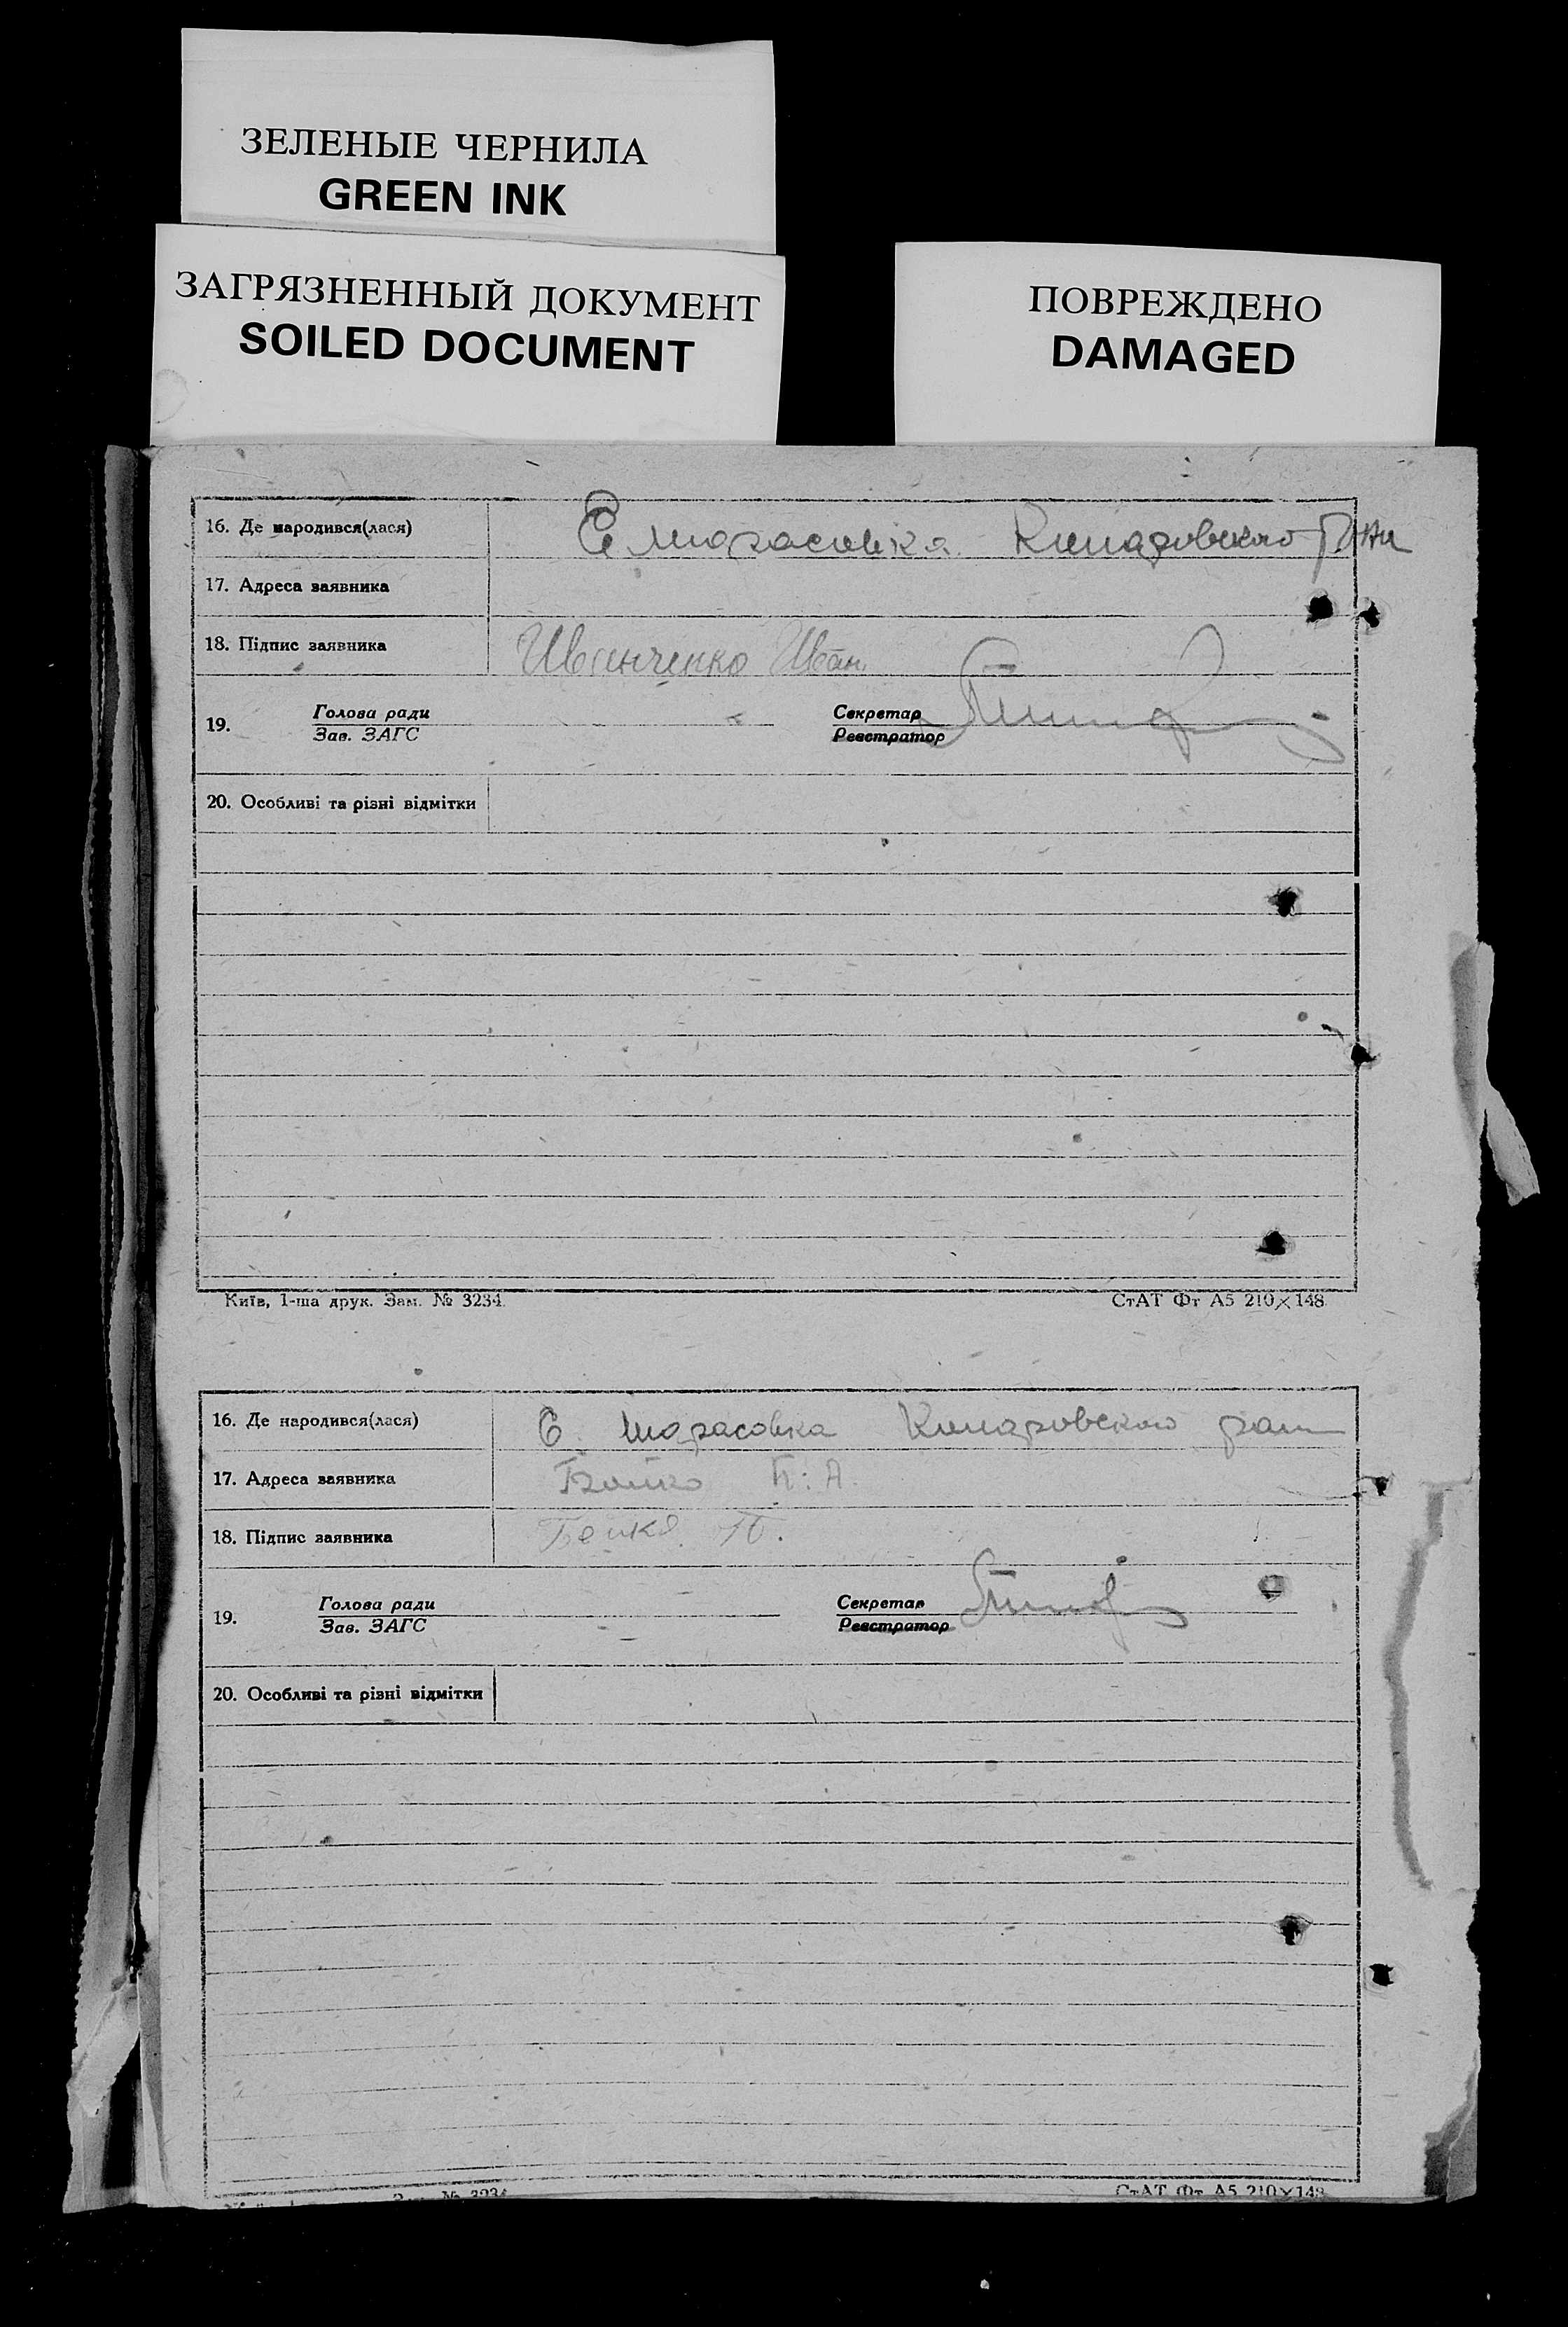 ЗЕЛЕНЫЕ ЧЕРНИЛА
GREEN INK
ЗАГРЯЗНЕННЫЙ ДОКУМЕНТ
SOILED DOCUMENT
ПОВРЕЖДЕНО
DAMAGED
16. Де народився(лася)
17. Адреса заявника
18. Підпис заявника Иванченко Иван
19. Голова ради Секретар
Зав. ЗАГС Реєстратор
20. Особливі та різні відмітки
Київ, 1-ша друк. Зам. № 3234. СтАТ Фт А5 210×148
16. Де народився(лася) С. Тарасовка
17. Адреса заявника Бойко П. А.
18. Підпис заявника П.
19. Голова ради Секретар
Зав. ЗАГС Реєстратор
20. Особливі та різні відмітки
№ 3234 СтАТ Фт А5 210×148